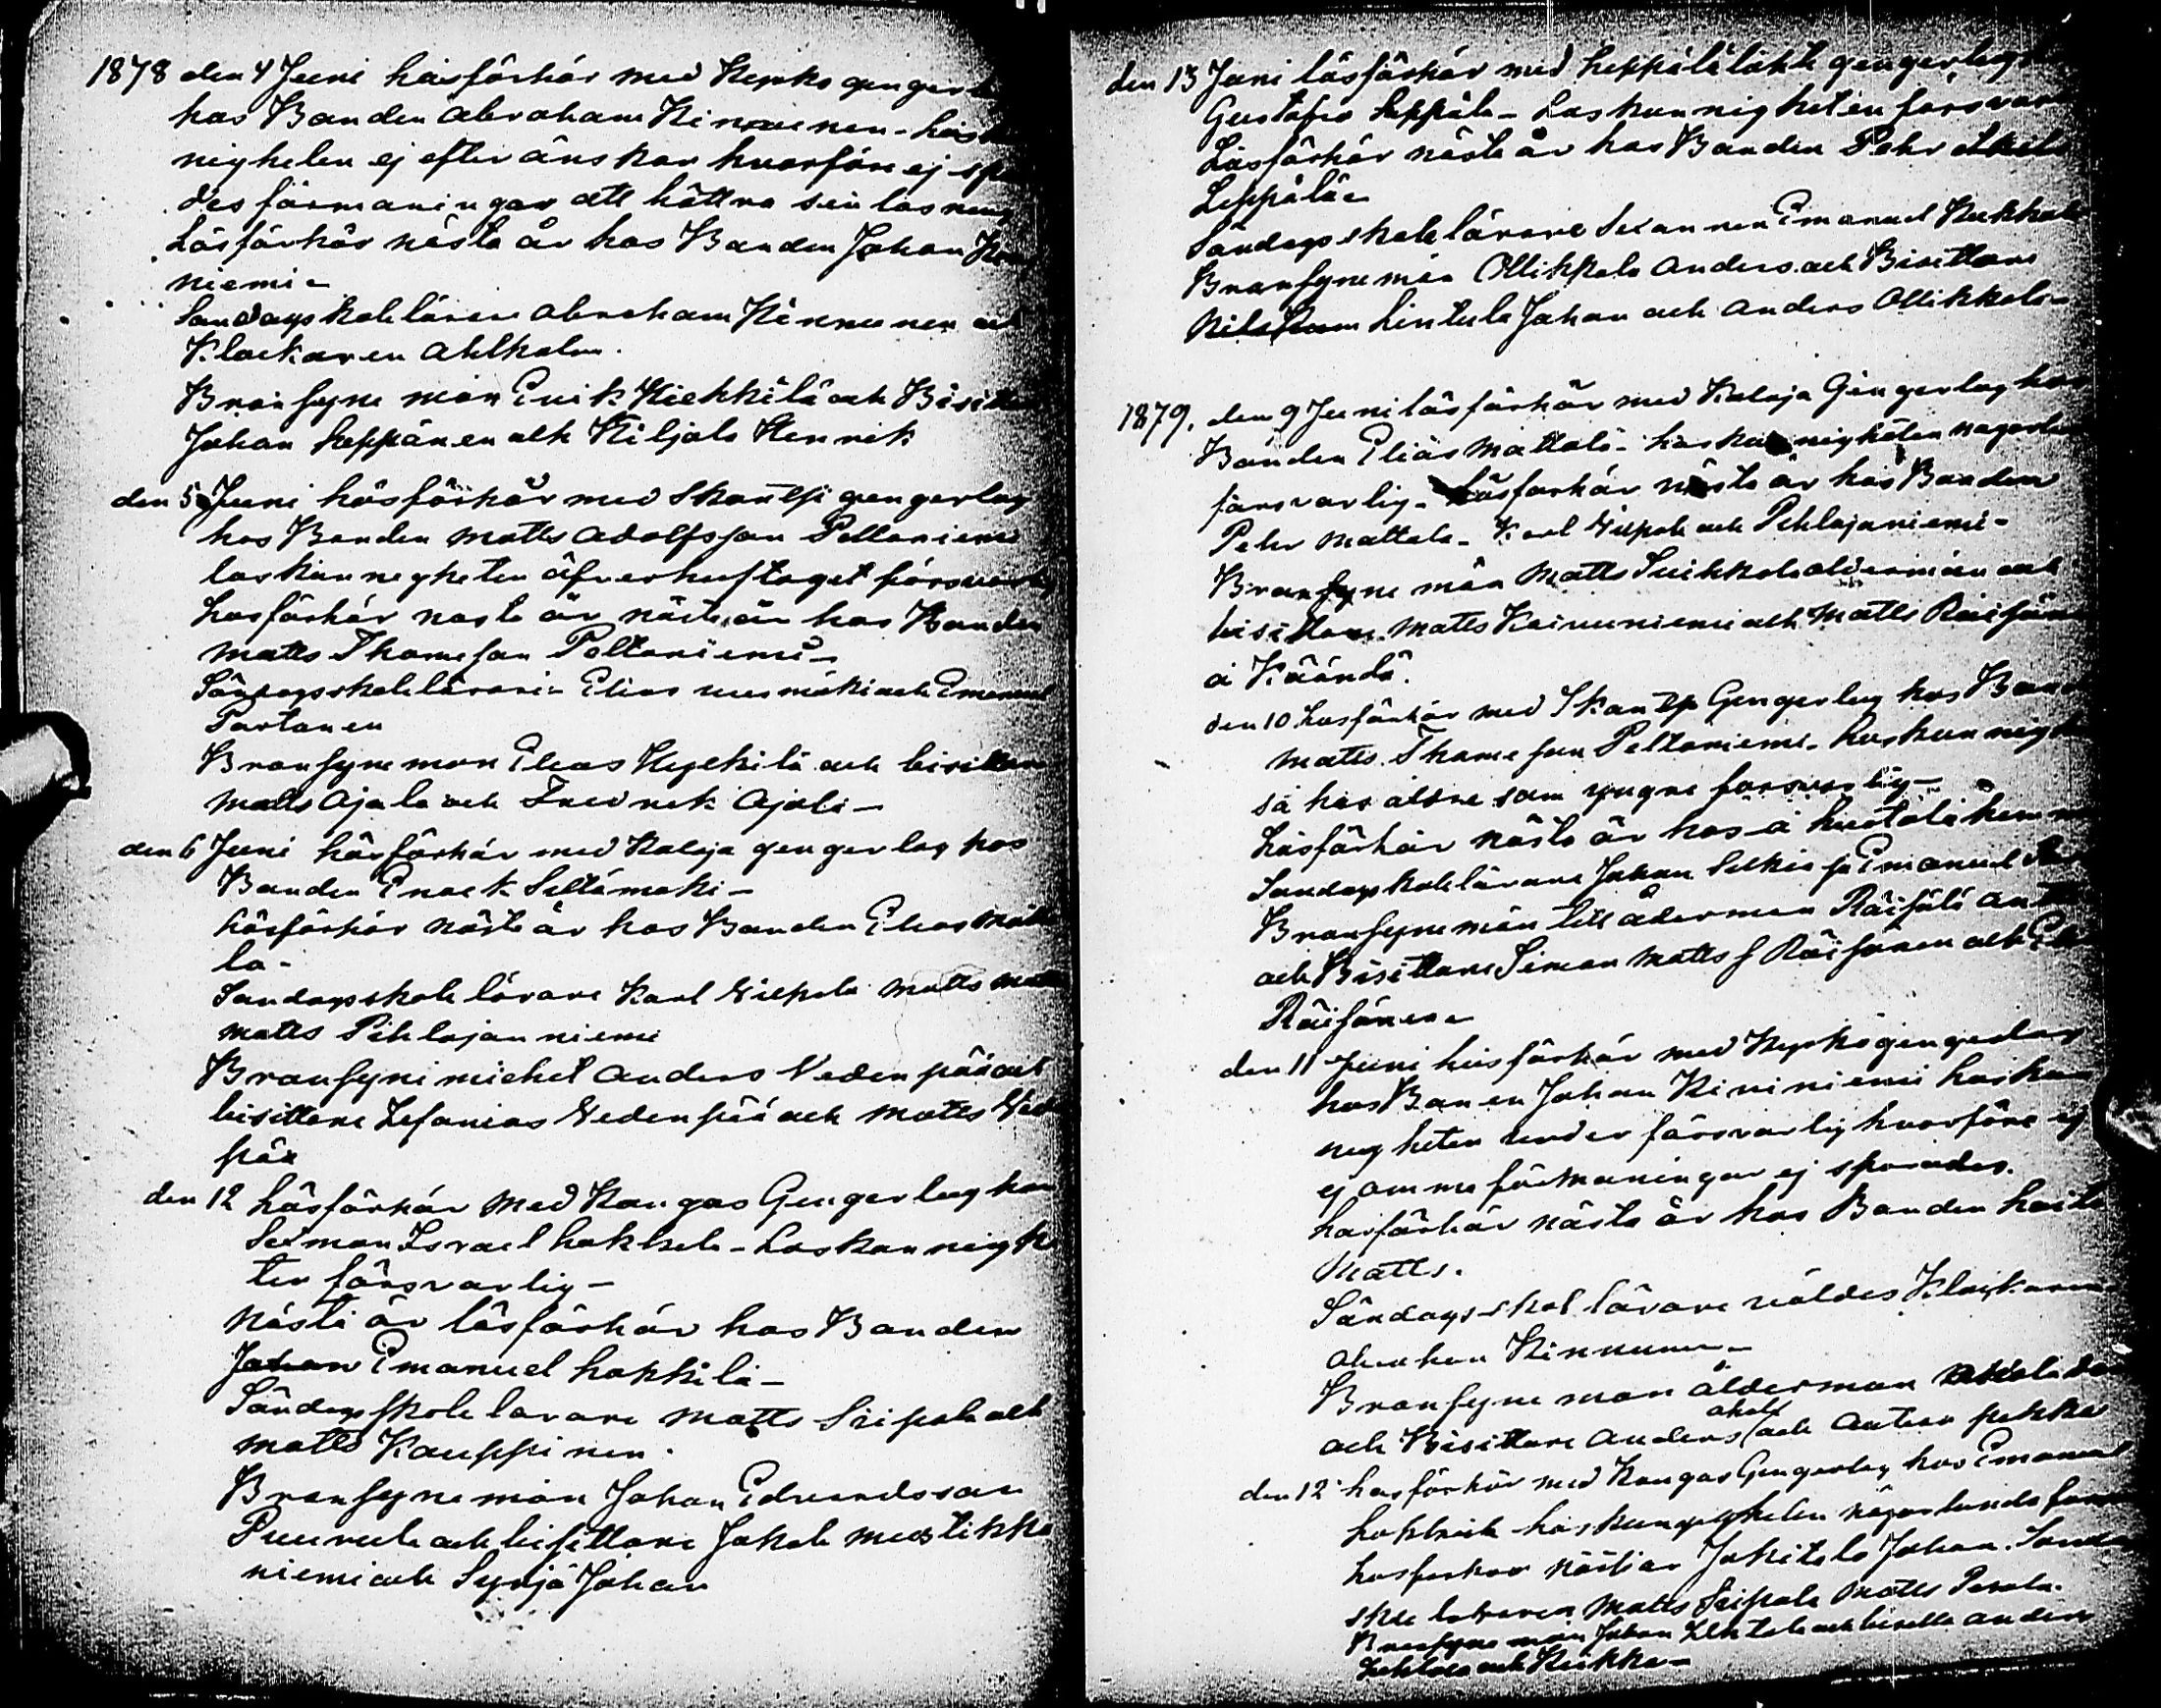 1878 den 4 Juni läsförhör med Kyrko gingerla
hos Bonden Abraham Kinnunen - läs
nigheten ej efter önskan hvarföre ej spa
des förmaningar att bättra sin läsning
Läsförhör nästa år hos Bonden Johan
niemi -
Söndagskolelärare Abraham Kinnunen och
Klockaren Ahlholm.
Bransyne män Erik Kiekkilä och Bisitt
Johan Leppänen och Kiljala Henrik
den 5 Juni läsförhör med Skantzi gengerlag
hos Bonden Matts Adolfsson Peltoniemi
läskunnegheten öfverhuftaget försvarlig
Läsförhör nästa år näste år hos Bonden
Matts Thomesson Peltoniemi -
Söndagsskolelärare Elias uusmäki och Emanuel
Partanen
Bransyne män Elias Kylkilä och bisittare
Matts Ajala och Fredrik Ajala -
den 6 Juni läsförhör med Kalaja gengerlag hos
Bonden Enock Seltämäki -
Läsförhör näste år hos Bonden Elias Matta
la -
Söndagsskole lärare Karl Vilpola Matts
Matts Pihlajanniemi
Bransyne michel Anders Vedenpää och
bisittare Zefanias Vedenpää och Matts Ved
pää
den 12 Läsförhör med Kangas Gengerlag hos
Sexman Israel hokkele - Läskunnigh
ten försvarlig -
Nästa år läsförhör hos Bonden
Johan Emanuel hokkila -
Söndagsskole lärare Matts Siipola och
Matts Kauppinen.
Bransyne män Johan Edvardsson
Puurula och bisittare Jakob mustikka
niemi och Syrjä Johan
den 13 Juni läsförhör med Leppälälakte gengerlag
Gustafve Leppälä - Läskunnigheten försvar
Läsförhör nästa år hos Bonden Pehr
Leppälä -
Söndagsskolelärare Sexannen Emanuel Kukkola
Bransyne män Ollikkala Anders och Bisittare
Lintula Johan och Anders Ollikkala -
1879. den 9 Juni läsförhör med Kalaja Gengerlag hos
Bonden Elias Mattala - Läskunnigheten någorlun
försvarlig - Läsförhör nästa år hos Bonden
Pehr Mattala - Karl Vilpola och Pihlajaniemi -
Bransyne män Matts Suikkola ålderman och
bisittare Matts Keinuniemi och Matts Räisänen
å Käändä.
den 10 Läsförhör med Skantzi Gengerlag hos Bon
Matts Thomesson Peltoniemi. Läskunnigh
så hos äldre som yngre försvarlig -
Läsförhör nästa år hos å huotala hemm
Söndagskolelärare Johan Selkis Emanuel
Bransyne män till ålderman Räisälä
och Bisittare Simon Matts s Räisänen och
Räisänen -
den 11 Juni läsförhör med Kyrkogengerlag
hos Bonen Johan Kiviniemi Läskun
nigheten under försvarlig hvarföre ej
ej omme förmaningar ej sparades.
Läsförhör nästa år hos Bonden
Matts.
Söndagsskol lärare valdes Klockaren
Abraham Kinnunen -
Bransyne män ålderman
och Bisittare Anders och Anters pekka
den 12 Läsförhör med Kangas Gengerlag hos Emanuel
hokkila Läskunnigheten någorlunda forsv
Läsforhor näst år Jokitalo Johan. Sönda
skle lärare Matts Siipola Matts Pesola.
Bransyne män Johan Lintala och bisitta Anders
och Kukko -